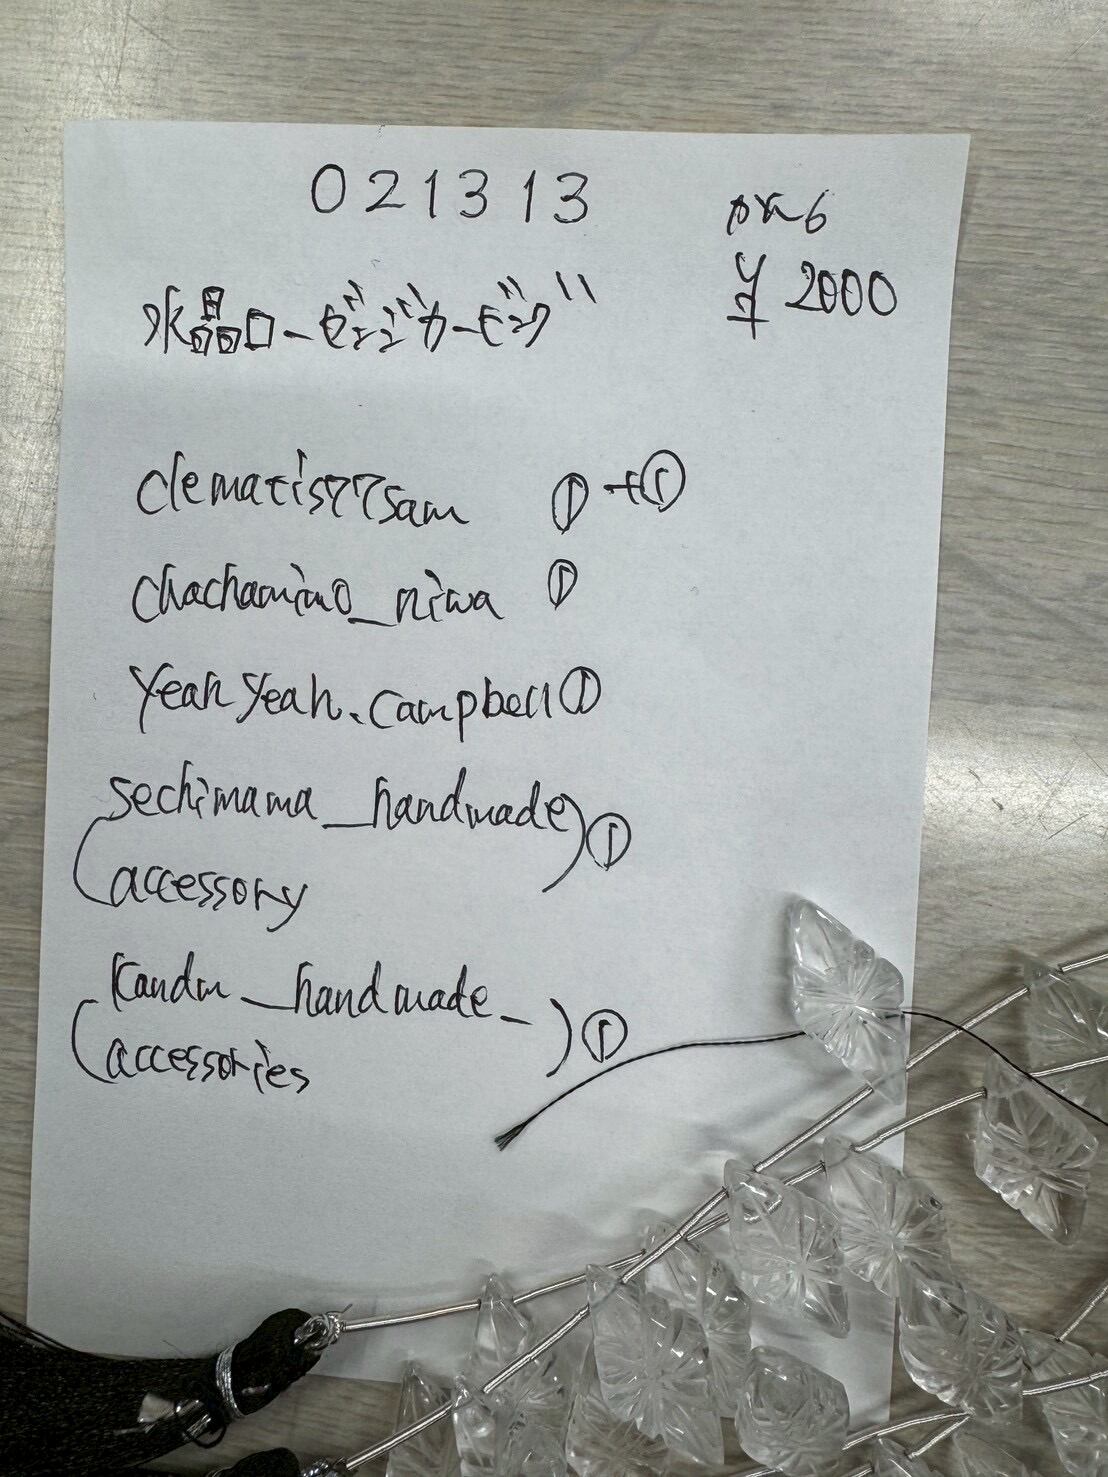 021313
¥2000
水晶ローゼンジカービング
clematis77sam ①+①
chachamimo_niwa ①
yeahyeah.campbell ①
(sechimama_handmade
accessory) ①
(kandm_handmade_
accessories) ①